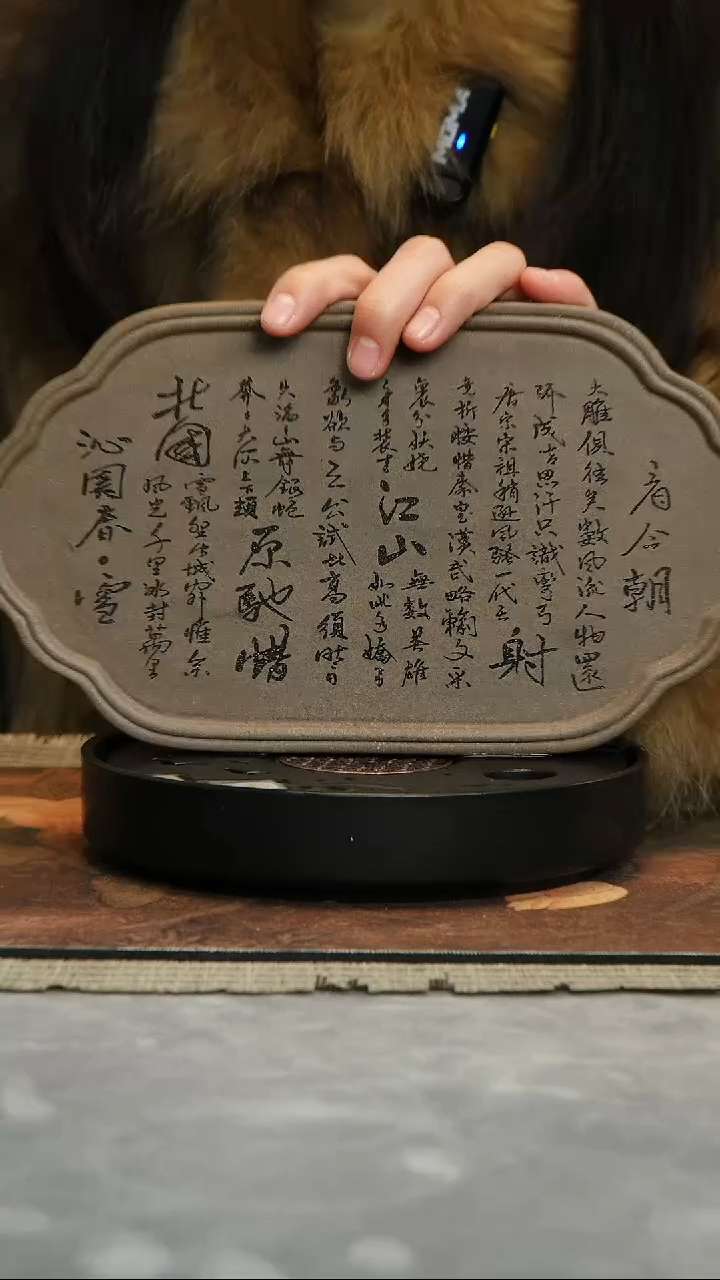 沁園春·雪
北國
風光千里冰封萬里
雪飄望长城內外惟余
莽莽大河上下頓
失滔滔山舞銀蛇
原馳蜡
象欲與天公試比高須晴日
看紅裝素
裹分外妖嬈
江山
如此多嬌引
無數英雄
競折腰惜秦皇漢武略輸文采
唐宗宋祖稍遜風騷一代天
驕成吉思汗只識彎弓
射
大雕俱往矣數風流人物還
看今朝